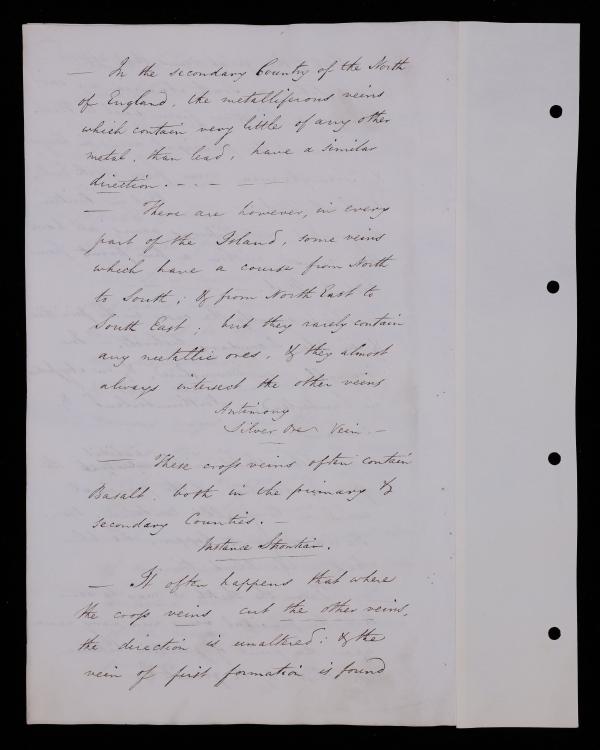 — In the secondary Country of the North
of England, the metalliferous veins
which contain very little of any other
metal, than lead, have a similar
direction. - - - — —
— There are however, in every
part of the Island, some veins
which have a course from North
to South; & from North East to
South East; but they rarely contain
any metallic ores, & they almost
always intersect the other veins
Antimony
Silver Ore Vein —
— These cross veins often contain
Basalt, both in the primary &
secondary Counties. —
Instance Strontian.
— It often happens that where
the cross veins cut the other veins,
the direction is unaltered: & the
vein of first formation is found